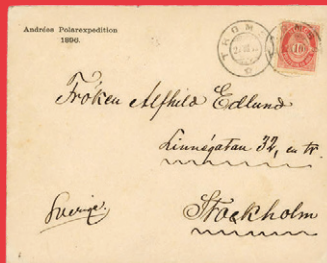 Andrées Polarexpedition
1896.
TROMS
10
Fröken Alfhild Edlund
Linnégatan 32, en tr.
Sverige.
Stockholm